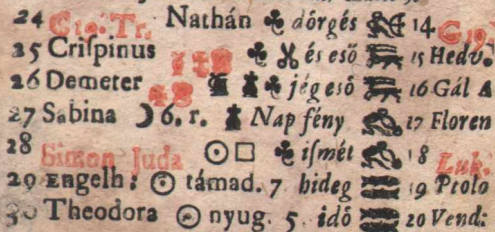 24 Nathán ♣ dörgés 14
25 Criſpinus ♣ és eső 15 Hedv.
26 Demeter ♣ jég eső 16 Gál A
27 Sabina ☽ 6. r. Nap fény 17 Floren
28 Simon Juda ☉ □ ♣ iſmét 18 Luk.
29 Engelh: ☉ támad. 7 hideg 19 Ptolo
30 Theodora ☉ nyug. 5. idő 20 Vend: